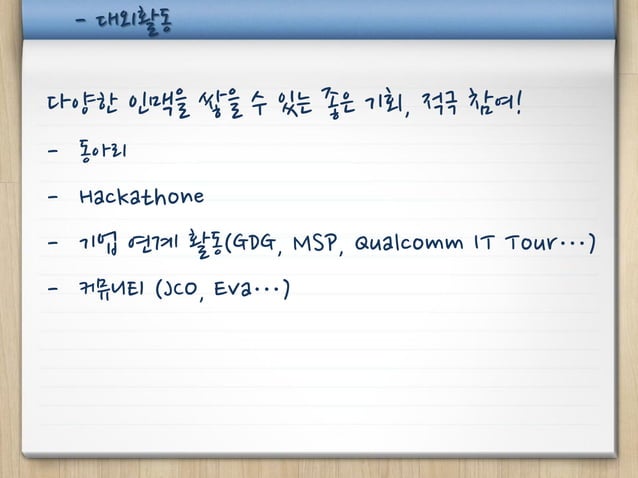 - 대외활동
다양한 인맥을 쌓을 수 있는 좋은 기회, 적극 참여!
- 동아리
- Hackathone
- 기업 연계 활동(GDG, MSP, Qualcomm IT Tour…)
- 커뮤니티 (JCO, Eva…)